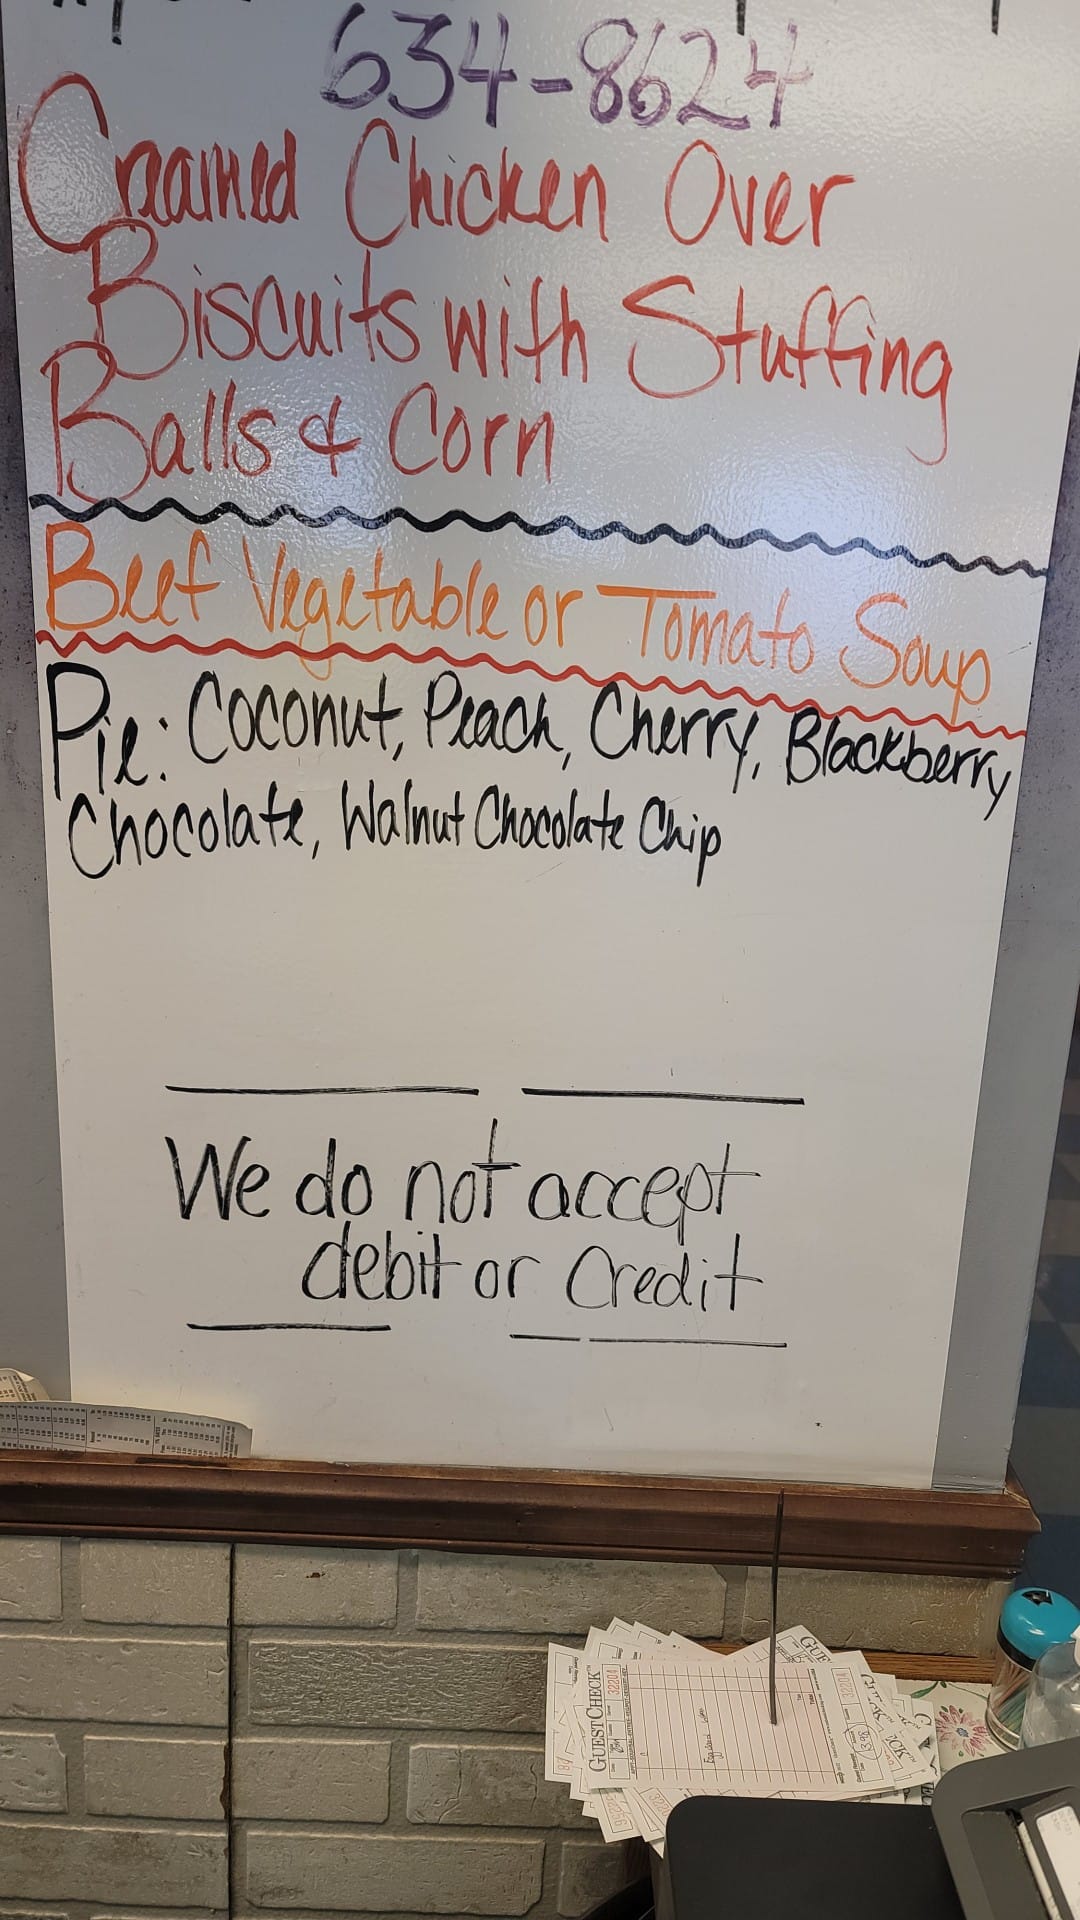 634-8624
Creamed Chicken Over
Biscuits with Stuffing
Balls & Corn
Beef Vegetable or Tomato Soup
Pie: Coconut, Peach, Cherry, Blackberry
Chocolate, Walnut Chocolate Chip
We do not accept
debit or Credit
GUEST CHECK
32204
32204
GUE